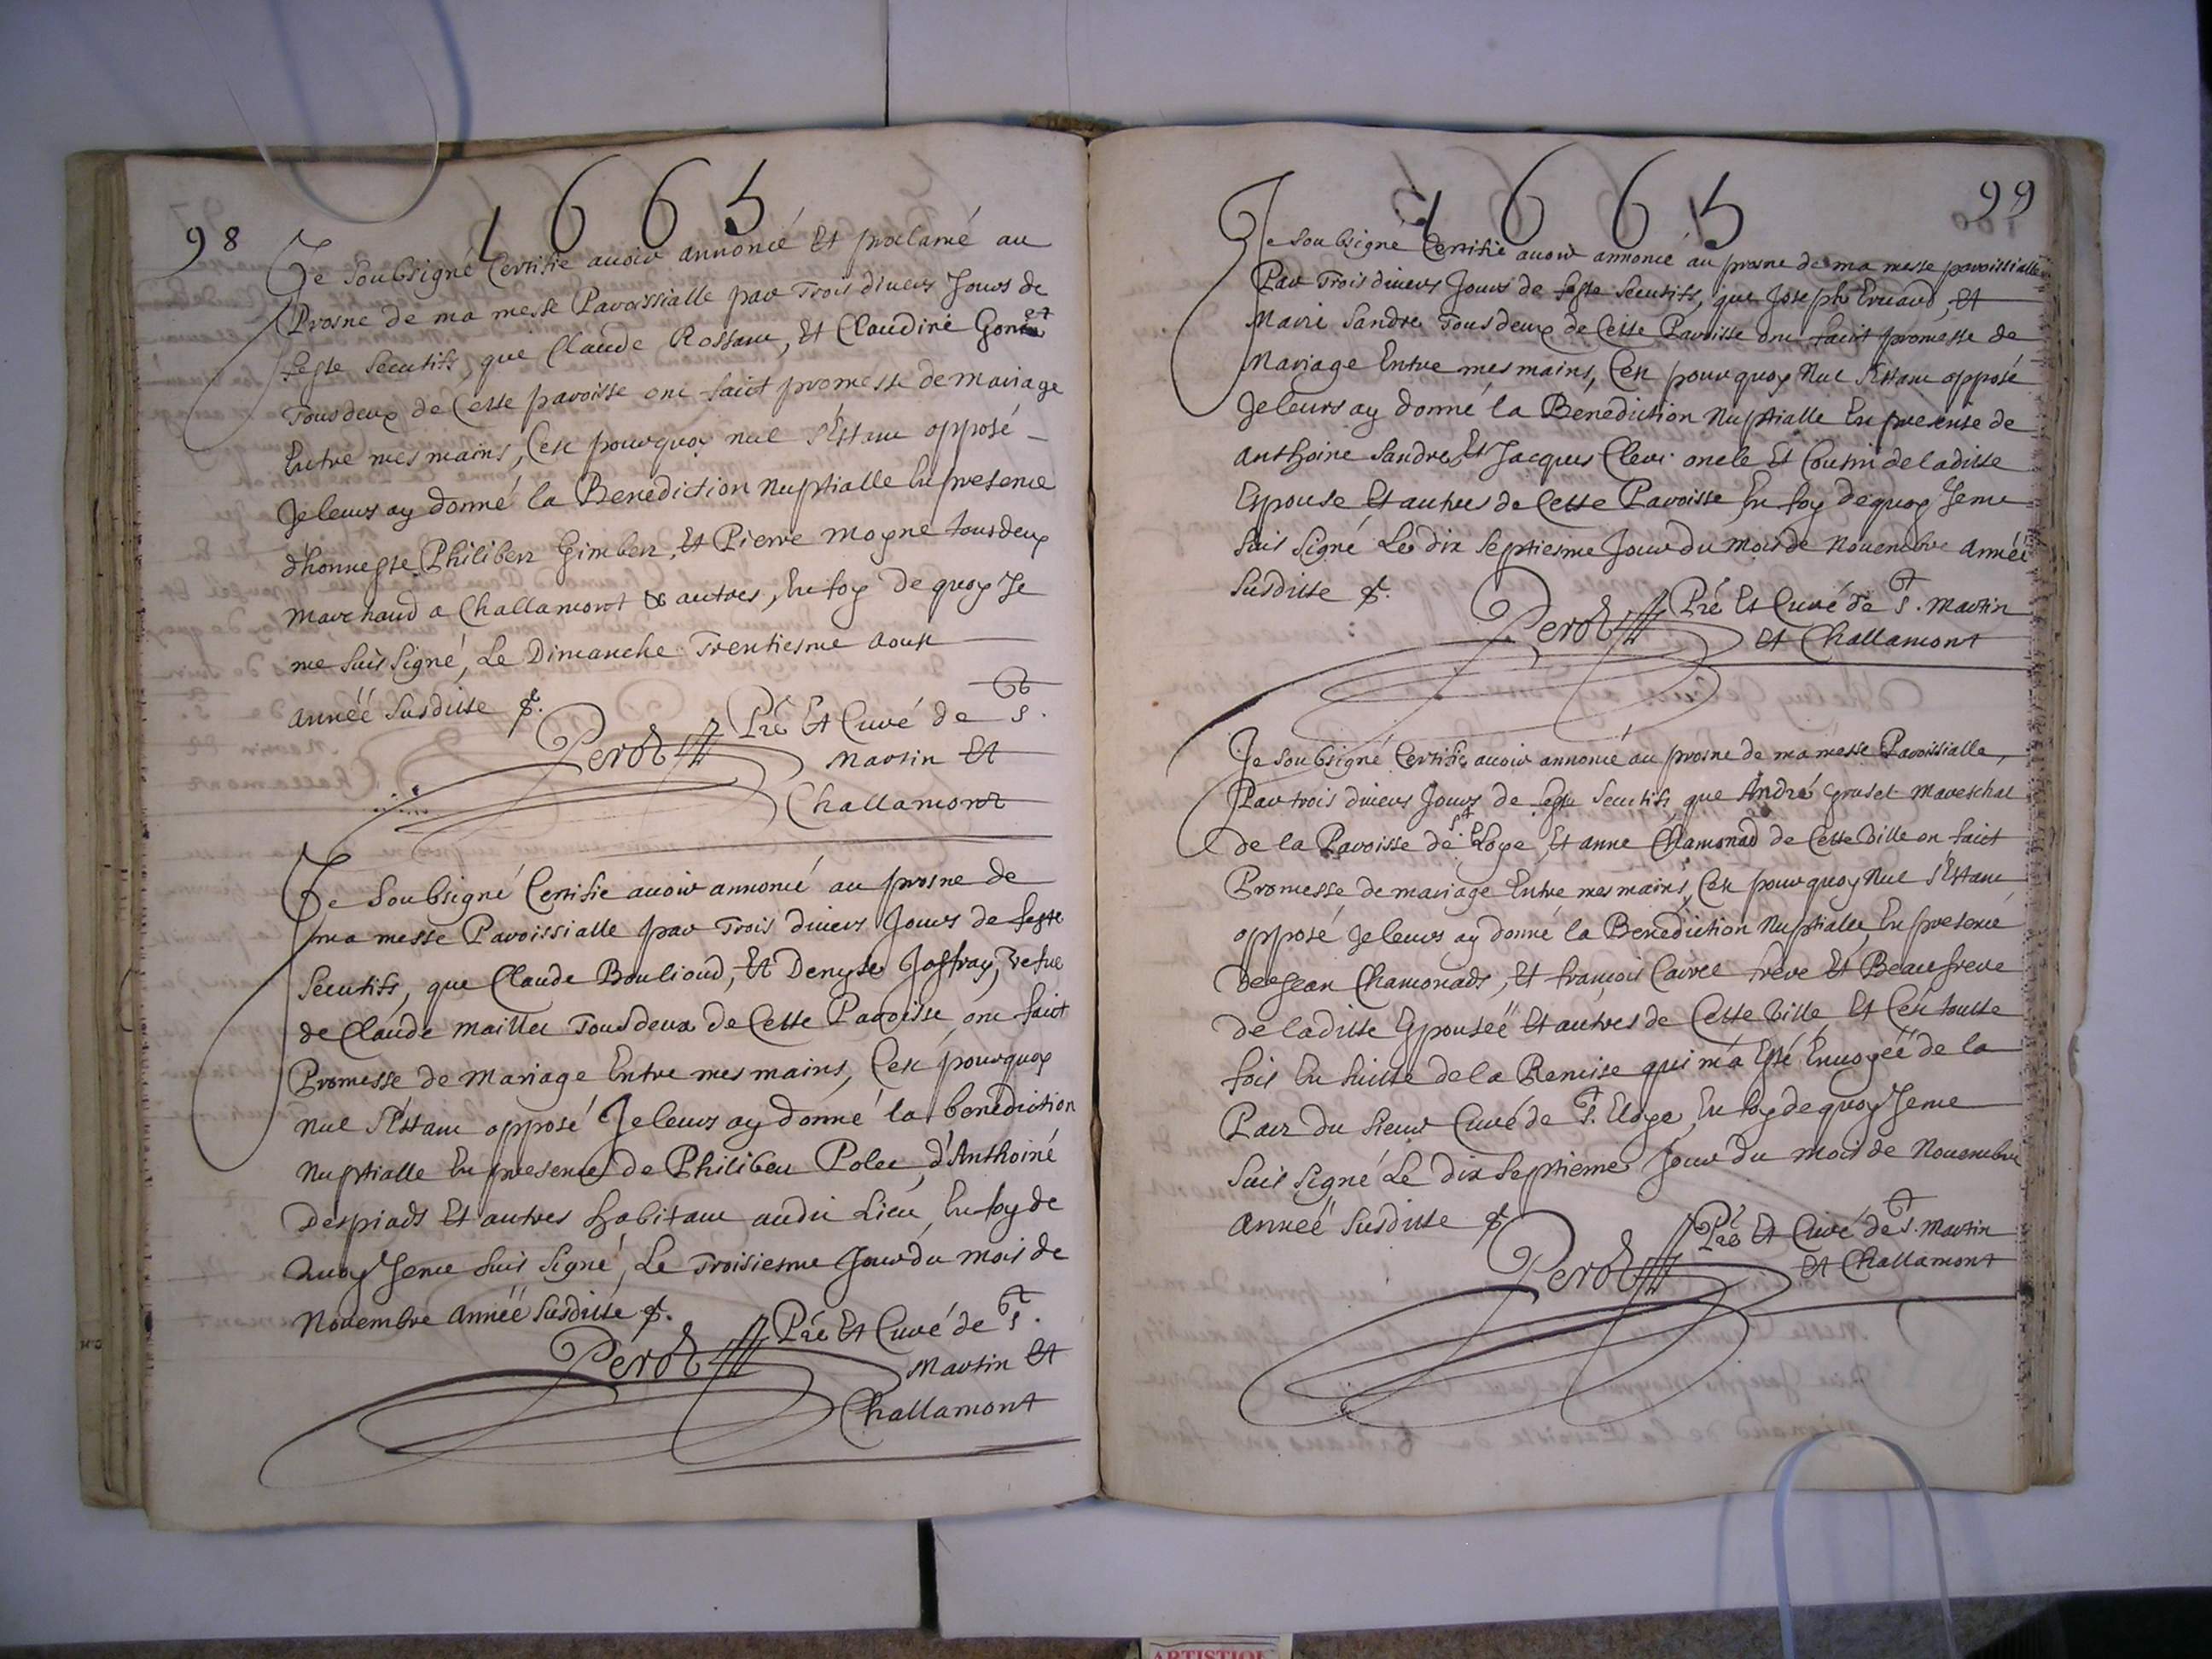 98
1665
Je soubsigné Certifie auoir annoncé Et proclamé au
Prosne de ma messe Paroissialle par Trois diuers Jours de
feste secutifs, que Claude Rossan, Et Claudine
Tous deux de Cette paroisse ont faict promesse de mariage
Entre mes mains, C'est pourquoy nul s'Estant opposé
Je leurs ay donné la Benediction Nuptialle En presence
d'honneste Philibert Gimbert, Et Pierre Moyne tous deux
Marchand a Challamont & autres, En foy de quoy Je
me suis signé, Le Dimanche Trentiesme Aoust
Année susditte &.
Perot Pré Et Curé de St.
Martin Et
Challamont
Je soubsigné Certifie auoir annoncé au prosne de
ma messe Paroissialle par Trois diuers Jours de feste
secutifs, que Claude Boulioud, Et Denyse Joffray, Vefue
de Claude Maillet Tous deux de Cette Paroisse ont faict
Promesse de Mariage Entre mes mains, C'est pourquoy
nul s'Estant opposé Je leurs ay donné la benediction
Nuptialle En presence de Philibert Polet, d'Anthoine
Despiads Et autres habitant audit Lieu, En foy de
Quoy Je me suis signé, Le Troisiesme Jour du mois de
Nouembre Année susditte &.
Perot Pré Et Curé de St.
Martin Et
Challamont
99
1665
Je soubsigné Certifie auoir annoncé au prosne de ma messe paroissialle
Par Trois diuers Jours de feste secutifs, que Joseph Eruaud, Et
Marie Sandre Tous deux de Cette Paroisse ont faict promesse de
Mariage Entre mes mains, C'est pourquoy Nul s'Estant opposé
Je leurs ay donné la Benediction Nuptialle En presense de
Anthoine Sandre, Et Jacques Clerc oncle Et Cousin de laditte
Epouse Et autres de Cette Paroisse En foy de quoy Je me
suis signé Le dix septiesme Jour du mois de Nouembre Année
Susditte &.
Perot Pré Et Curé de St. Martin
Et Challamont
Je soubsigné Certifie auoir annoncé au prosne de ma messe Paroissialle,
Par trois diuers Jours de feste secutifs que André Gruset Mareschal
de la Paroisse de St. Eloye, Et anne Chamonad de Cette Ville on faict
Promesse de mariage Entre mes mains, C'est pourquoy Nul s'Estant
opposé Je leurs ay donné la Benediction Nuptialle, En presence
de Jean Chamonads, Et françois Cairel frere Et Beaufrere
de laditte Epouseë Et autres de Cette Ville Et C'est toutte
fois En suitte de la Remise qui m'a Esté Enuoyéë de la
Part du sieur Curé de St. Eloye, En foy de quoy Je me
suis signé Le dix septieme Jour du mois de Nouembre
Anneë susditte &
Perot Pré Et Curé de St. Martin
Et Challamont